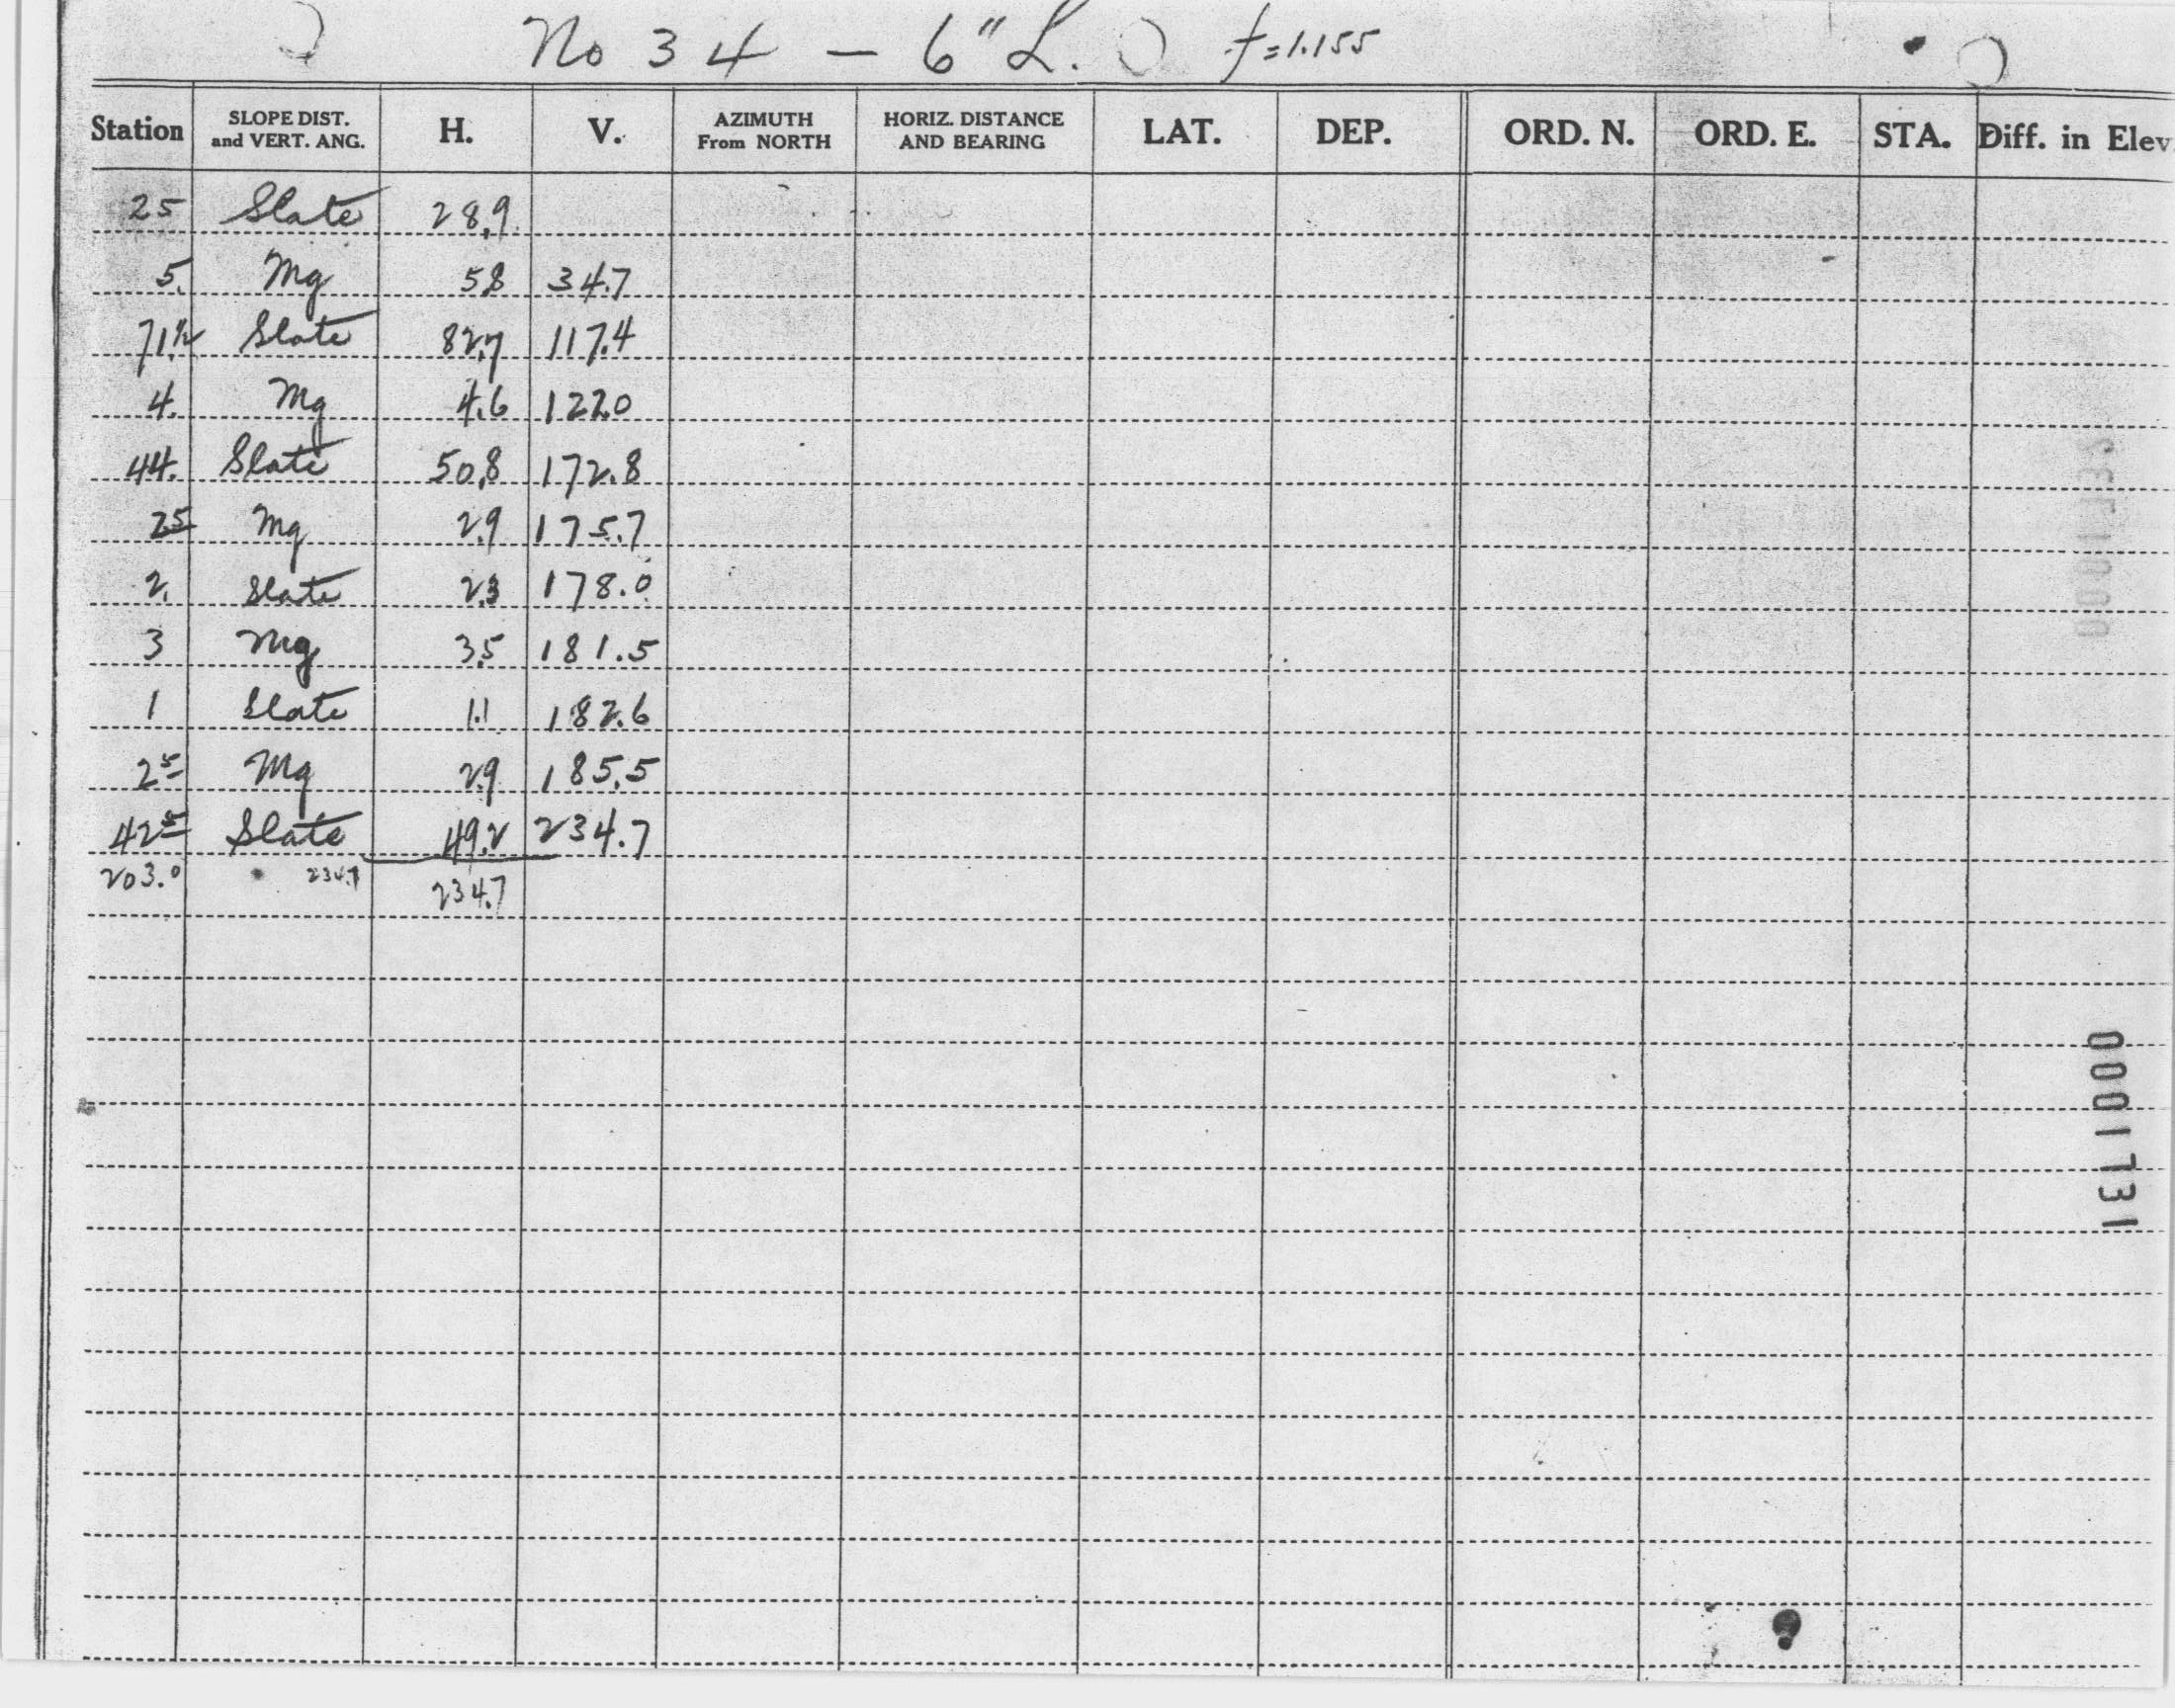 No 34 - 6" L. f=1.155
Station SLOPE DIST. and VERT. ANG. H. V. AZIMUTH From NORTH HORIZ. DISTANCE AND BEARING LAT. DEP. ORD. N. ORD. E. STA. Diff. in Elev
25 Slate 28.9
5. Mg 5.8 34.7
71½ Slate 82.7 117.4
4. Mg 4.6 122.0
44. Slate 50.8 172.8
25 Mg 2.9 175.7
2. Slate 2.3 178.0
3 Mg 3.5 181.5
1 Slate 1.1 182.6
2⁵ Mg 2.9 185.5
42⁵ Slate 49.2 234.7
203.0 234.7 234.7
0001732
0001731